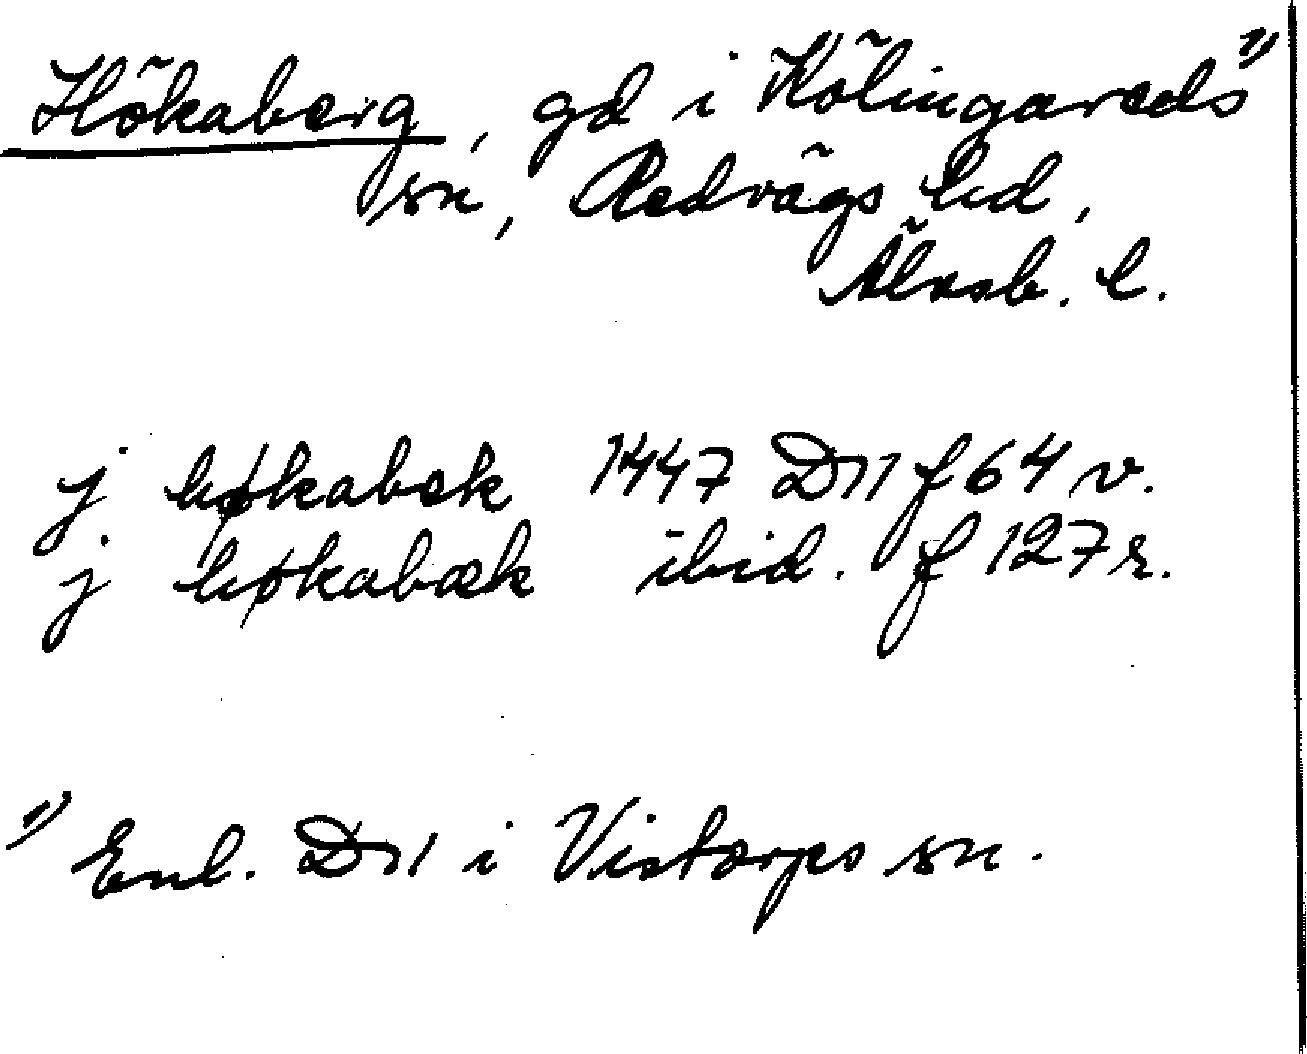 Hökaberg, gd i Kölingareds 1)
sn, Redvägs hd,
Älvsb. l.
j høkabek 1447 D11 f 64 v.
j høkabæk ibid. f 127 r.
1) Enl. D11 i Vistorps sn.